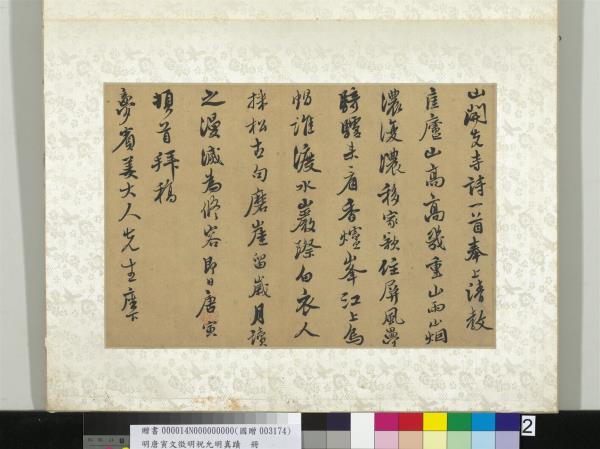 山開先寺詩一首奉上請教
匡廬山高高幾重山雨山烟
濃復濃移家欲住屏風疊
騎驢來看香爐峯江上烏
帽誰渡水巖際白衣人
採松古句磨崖留歲月讀
之漫滅為修容即日唐寅
頓首拜稿
夢賓姜大人先生座下
贈書000014N000000000(國贈003174)
明唐寅文徵明祝允明真蹟 冊
2